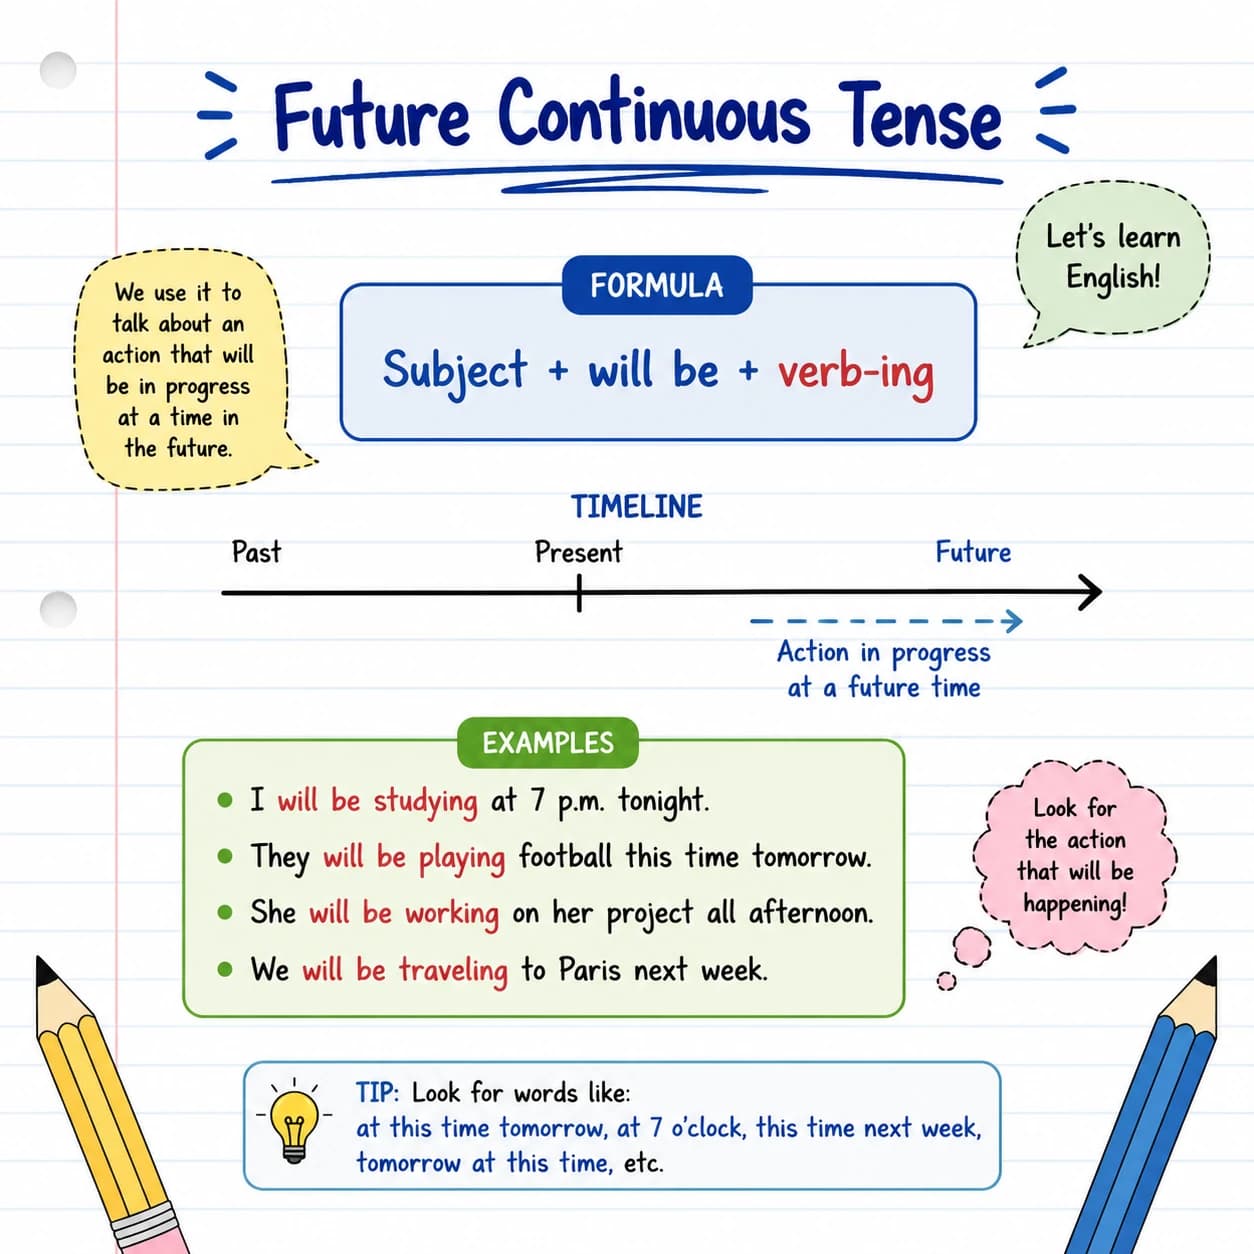 Future Continuous Tense
Let's learn
English!
We use it to
talk about an
action that will
be in progress
at a time in
the future.
FORMULA
Subject + will be + verb-ing
TIMELINE
Past Present Future
Action in progress
at a future time
EXAMPLES
• I will be studying at 7 p.m. tonight.
• They will be playing football this time tomorrow.
• She will be working on her project all afternoon.
• We will be traveling to Paris next week.
Look for
the action
that will be
happening!
TIP: Look for words like:
at this time tomorrow, at 7 o'clock, this time next week,
tomorrow at this time, etc.